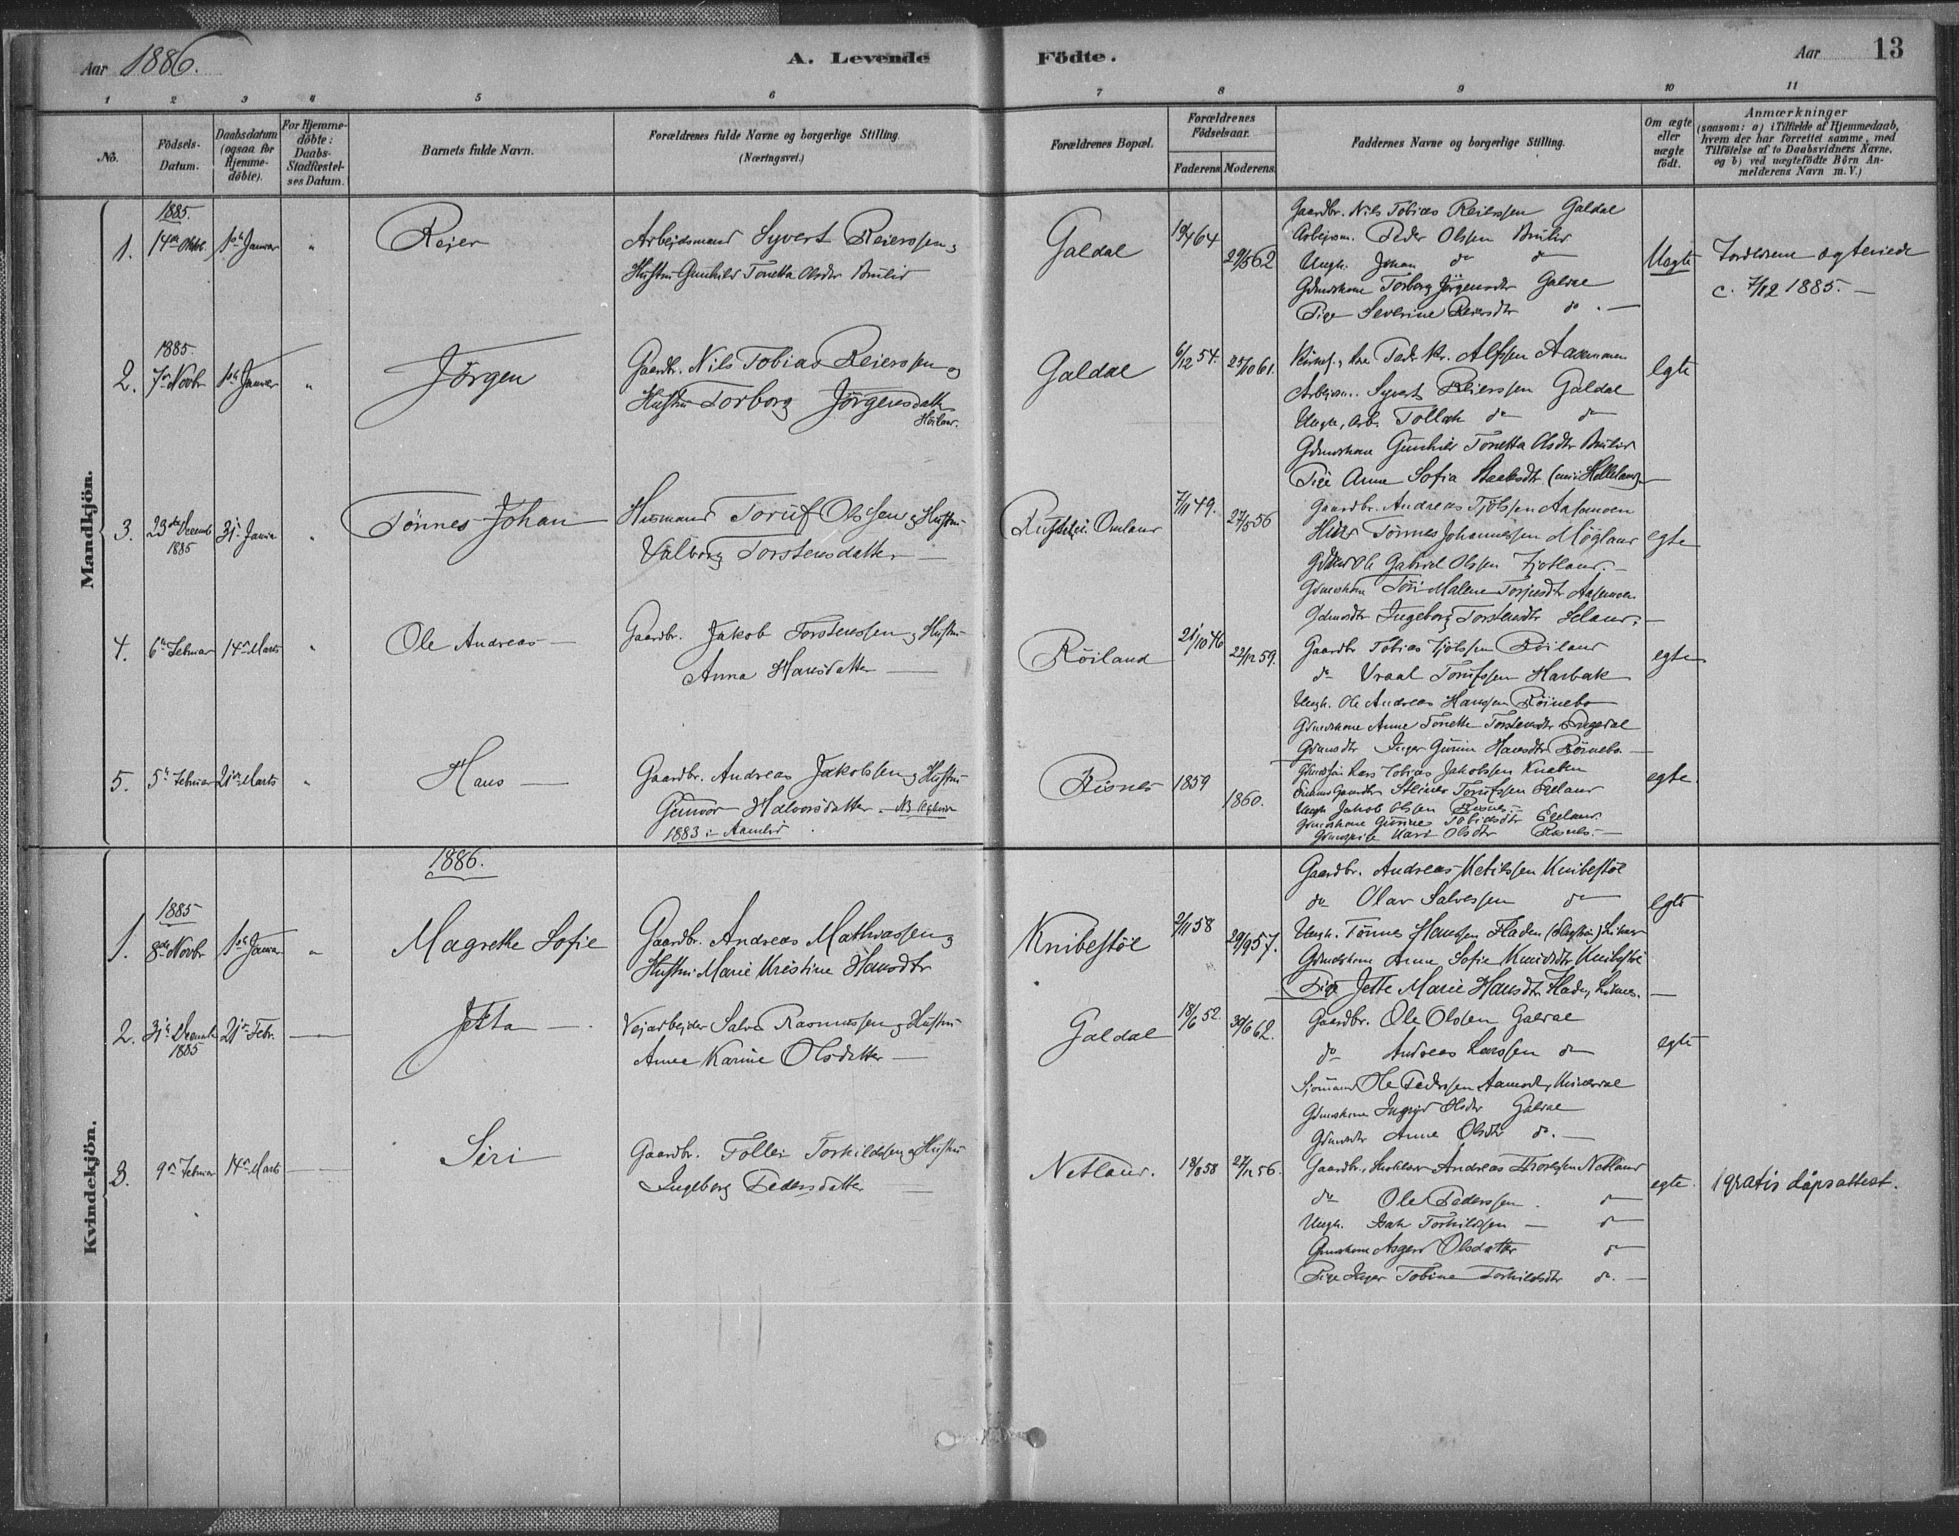 Aar 1886. A. Levende Födte. Aar 13
1 2 3 4 5 6 7 8 9 10 11
No. Födsels-Datum. Daabsdatum (ogsaa for Hjemmedöbte). For Hjemmedöbte: Daabs-Stadfæstelses Datum. Barnets fulde Navn. Forældrenes fulde Navne og borgerlige Stilling. (Næringsvei.) Forældrenes Bopæl. Forældrenes Födselsaar. Faderens Moderens. Faddernes Navne og borgerlige Stilling. Om ægte eller uægte födt. Anmærkninger (saasom: a) i Tilfælde af Hjemmedaab, hvem der har forrettet samme, med Tilföielse af to Daabsvidners Navne, og b) ved uægtefödte Börn Anmelderens Navn m. V.)
Mandkjön.
1. 1885. 14de Oktbr. 1ste Januar " Reier
Arbeidsmand Syvert Reierssen og
Hustru Gunhild Tonetta Olsdtr Brulid
Galdal 64 29/5 62
Gaardbr. Nils Tobias Reierssen Galdal
Arbeidsm. Peder Olsen Brulid
Ungk. Johan do do
Gdmdskone Torborg Jörgensdtr Galdal
Pige Severine Reiersdtr do. —
Uegte
Foreldrene egteviede
c. 7/12 1885. —
2. 1885 7de Novbr 1ste Januar " Jörgen
Gaardbr. Nils Tobias Reierssen og
Hustru Torborg Jörgensdatter
Galdal 6/12 54. 25/10 61.
Alfssen Aasmoen
Arbeidsm. Syvert Reierssen Galdal
Ungk. Arb. Tollak do do
Gdmdskone Gunhild Tonetta Olsdtr Brulid
Pige Anne Sofia
egte
3. 23de Decemb 1885 31te Januar " Tönnes Johan
Husmand Toruf Olssen og Hustru
Valborg Torstensdatter —
Omland 7/11 49. 27/5 56
Gaardbr. Andreas Tjölssen Aasmoen
Tönnes Johannessen Mögland
Ole Gabriel Olssen Fjotland. —
Gdmdskone Töri Malene Aasmoen
Gdmdsdtr Ingeborg Torstensdtr Seland. —
egte
4. 6te Februar 14de Marts " Ole Andreas —
Gaardbr. Jakob Torstenssen og Hustru
Anna Hansdatter —
Röiland 21/10 46 22/12 59.
Gaardbr Tobias Tjölssen Röiland
do Vraal Torufssen Harbak
Ungk. Ole Andreas Hanssen Röinebo
Gdmdskone Anne Tonette Torstensdtr
Gdmdsdtr Inger Gurine Hansdtr Röinebo. —
egte
5. 5te Februar 21de Marts " Hans —
Gaardbr. Andreas Jakobssen og Hustru
Gunvor Halvorsdatter.
1883 i Aamlid.
Risnes 1859 1860.
Lars Tobias Jakobssen Knaben
Steiner Torufssen Egeland
Ungk. Jakob Olssen Risnes. —
Gdmdskone Gurine Tobiasdtr Egeland
Kari Olsdtr Risnes. —
egte.
Kvindekjön.
1886.
1. 1885 8de Novbr 1ste Januar " Magrethe Sofie
Gaardbr. Andreas Mathiassen og
Hustru Marie Kristine Hansdtr
Knibestöl 2/11 58 29/9 57.
Gaardbr. Andreas Ketilssen Knibestöl
do Olav Salvessen do
Ungk. Tönnes Hanssen Fladen
Gdmdskone Anne Sofie Knudsdtr Knibestöl
Pige Jette Marie Hansdtr Fladen, —
egte
2. 31te Decemb 1885 21de Febr. — Jetta —.
Veiarbeider Salve Rasmussen og Hustru
Anne Karine Olsdatter —
Galdal 18/6 52. 30/6 62.
Gaardbr. Ole Olssen Galdal
do Andreas Larssen do
Sjömand Ole Pederssen Aamodt,
Gdmdskone Ingrid Olsdtr Galdal
Gdmdsdtr Anne Olsdtr do. —
egte
3. 9de Februar 14de Marts — Siri
Gaardbr. Follei Torkildssen og Hustru
Ingeborg Pedersdatter —
Netland. 18/8 58 27/12 56.
Gaardbr. Andreas Netland
do Ole Pederssen. do
Ungk. Isak Torkildssen — do
Gdmdskone Asgerd Olsdatter do
Pige Inger Tobine Torkildsdtr do. —
egte.
1 gratis dåpsattest.